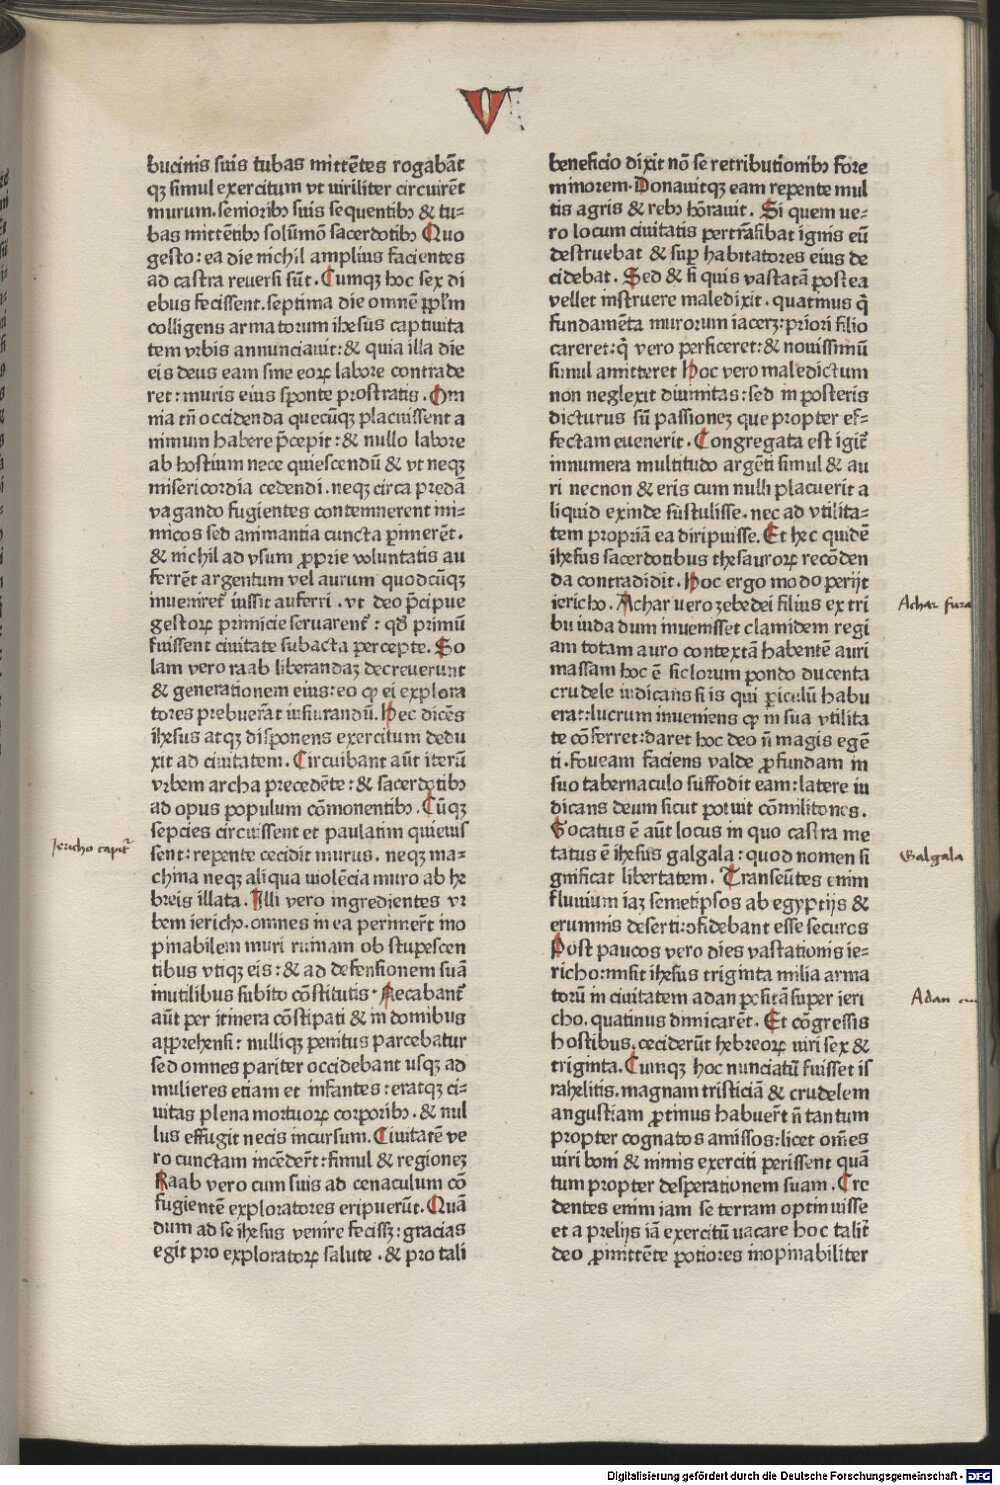 V
bucinis suis tubas mittētes rogabāt
qꝫ simul exercitum vt uiriliter circuirēt
murum. senioribꝰ suis sequentibꝰ & tu⸗
bas mittētibꝰ solūmō sacerdotibꝰ Quo
gesto: ea die nichil amplius facientes
ad castra reuersi sūt. Cumqꝫ hoc sex di
ebus fecissent. septima die omnē ꝓplm̄
colligens armatorum ihesus captiuita
tem vrbis annunciauit: & quia illa die
eis deus eam sine eorꝝ labore contrade
ret: muris eius sponte prostratis. Om
nia tn̄ occidenda quecūqꝫ placuissent a
nimum habere p̄cepit: & nullo labore
ab hostium nece quiescendū & vt neqꝫ
misericordia cedendi. neqꝫ circa predā
vagando fugientes contemnerent ini⸗
micos sed animantia cuncta ꝑimerēt.
& nichil ad vsum ꝓprie voluntatis au
ferrēt argentum vel aurum quodcūqꝫ
inueniret᷑ iussit auferri. vt deo p̄cipue
gestorꝝ primicie seruarent᷑: qd̄ primū
fuissent ciuitate subacta percepte. So
lam vero raab liberandaꝫ decreuerunt
& generationem eius: eo ꝙ ei explora
tores prebuerāt iusiurandū. Hec dicēs
ihesus atqꝫ disponens exercitum dedu
xit ad ciuitatem. Circuibant aūt iterū
vrbem archa precedēte: & sacerdotibꝰ
ad opus populum cōmonentibꝰ. Cūqꝫ
sepcies circuissent et paulatim quieuis
sent: repente cecidit murus. neqꝫ ma⸗
china neqꝫ aliqua uiolēcia muro ab he
breis illata. Illi vero ingredientes vr
bem iericho. omnes in ea perimerēt ino
pinabilem muri ruinam ob stupescen
tibus vtiqꝫ eis: & ad defensionem suā
inutilibus subito cōstitutis. Necabant᷑
aūt per itinera cōstipati & in domibus
apprehensi: nulliqꝫ penitus parcebatur
sed omnes pariter occidebant usqꝫ ad
mulieres etiam et infantes: eratqꝫ ci⸗
uitas plena mortuorꝝ corporibꝰ. & nul
lus effugit necis incursum. Ciuitatē ve
ro cunctam incēderūt: simul & regioneꝫ
Raab vero cum suis ad cenaculum cō
fugientē exploratores eripuerūt. Quā
dum ad se ihesus venire fecissꝫ: gracias
egit pro exploratorꝝ salute. & pro tali
beneficio dixit nō se retributionibꝰ fore
minorem. Donauitqꝫ eam repente mul
tis agris & rebꝰ hōrauit. Si quem ue⸗
ro locum ciuitatis pertrāsibat ignis eū
destruebat & suꝑ habitatores eius de
cidebat. Sed & si quis vastatā postea
vellet instruere maledixit. quatinus q̄
fundamēta murorum iacerꝫ: priori filio
careret: q̄ vero perficeret: & nouissimū
simul amitteret Hoc vero maledictum
non neglexit diuinitas: sed in posteris
dicturus sū passioneꝫ que propter ef⸗
fectam euenerit. Congregata est igit᷑
innumera multitudo argēti simul & au
ri necnon & eris cum nulli placuerit a
liquid exinde sustulisse. nec ad vtilita⸗
tem propriā ea diripuisse. Et hec quidē
ihesus sacerdotibus thesaurorꝝ recōden
da contradidit. Hoc ergo modo perijt
iericho. Achar uero zebedei filius ex tri
bu iuda dum inuenisset clamidem regi
am totam auro contextā habentē auri
massam hoc ē siclorum pondo ducenta
crudele iudicans si is qui ꝑiculū habu
erat: lucrum inueniens ꝙ in sua vtilita
te cōferret: daret hoc deo n̄ magis egē
ti. Foueam faciens valde ꝓfundam in
suo tabernaculo suffodit eam: latere iu
dicans deum sicut potuit cōmilitones.
Vocatus ē aūt locus in quo castra me
tatus ē ihesus galgala: quod nomen si
gnificat libertatem. Transeūtes enim
fluuium iaꝫ semetipsos ab egyptijs &
erumnis deserti: ꝯfidebant esse securos
Post paucos vero dies vastationis ie⸗
richo: misit ihesus triginta milia arma
torū in ciuitatem adan positā super ieri
cho. quatinus dimicarēt. Et cōgressis
hostibus. ceciderūt hebreorꝝ uiri sex &
triginta. Cumqꝫ hoc nunciatū fuisset is
rahelitis. magnam tristiciā & crudelem
angustiam ꝓtinus habuerūt n̄ tantum
propter cognatos amissos: licet om̄es
uiri boni & nimis exerciti perissent quā
tum propter desperationem suam. Cre
dentes enim iam se terram optinuisse
et a prelijs iā exercitū uacare hoc talit᷑
deo ꝓmittēte potiores inopinabiliter
Jericho capit᷑
Achar fura
Galgala
Adan
Digitalisierung gefördert durch die Deutsche Forschungsgemeinschaft - DFG